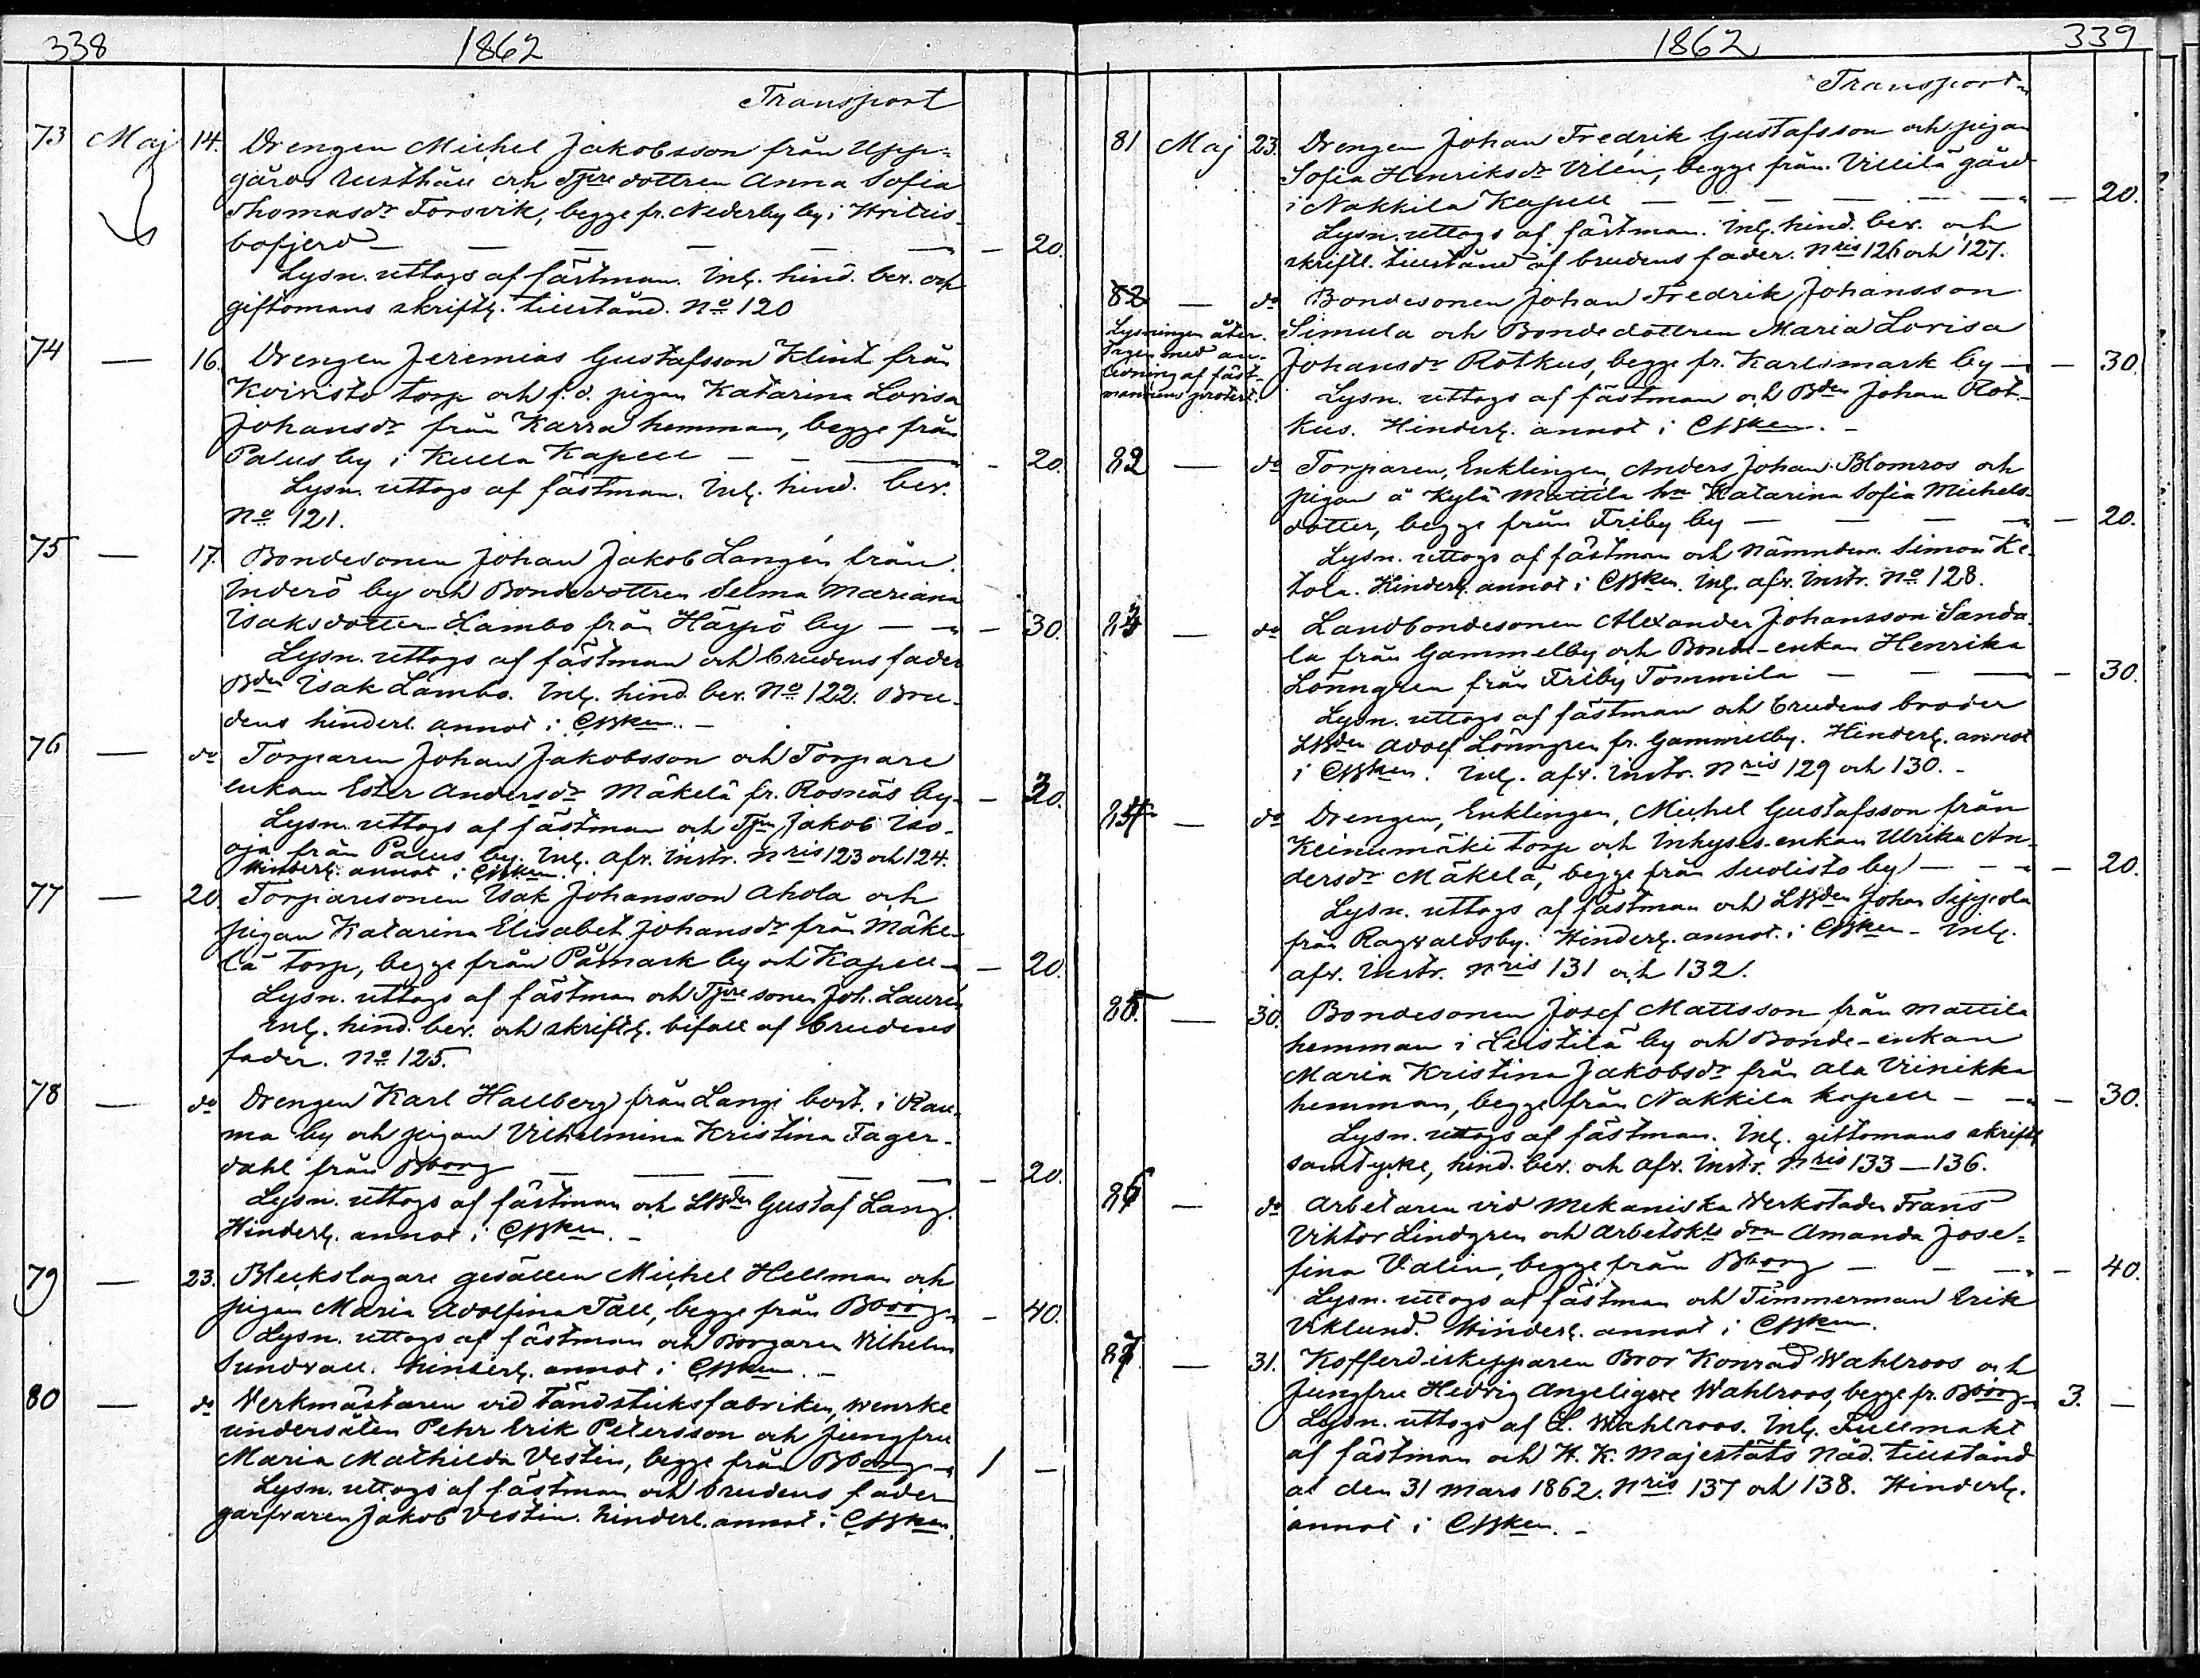 338
1862
Transport
73 Maj 14. Drengen Michel Jakobsson från Upp-
gårds Rusthåll och Tjredottren Anna Sofia
Thomasdr Forsvik, begge fr. Nederby by i Hvitis-
bofjerd — — — — — — 20.
Lysn. uttogs af fästman. Inl. hind. bev. och
giftomans skriftl. tillstånd. No 120
74 — 16. Drengen Jeremias Gustafsson Klint från
Koivisto torp och f.d. pigan Katarina Lovisa
Johansdr från Karra hemman, begge från
Palus by i Kulla Kapell — — — — 20.
Lysn. uttogs af fästman. Inl. hind. bev.
No 121.
75 — 17. Bondesonen Johan Jakob Langén från
Inderö by och Bondedottren Selma Mariana
Isaksdotter Lambo från Härpö by — — — 30.
Lysn. uttogs af fästman och brudens fader
Bden Isak Lambo. Inl. hind. bev. No 122. Bru-
dens hinderl. annot i CBken. —
76 — do Torparen Johan Jakobsson och Torpare
enkan Ester Andersdr Mäkelä fr. Rosnäs by — 20.
Lysn. uttogs af fästman och Tjrn Jakob Iso-
oja från Palus by. Inl. afv. Instr. Nris 123 och 124.
Hinderl. annot i CBken.
77 — 20. Torparesonen Isak Johansson Ahola och
pigan Katarina Elisabet Johansdr från Mäke-
lä torp, begge från Påmark by och Kapell — — 20.
Lysn. uttogs af fästman och Tjresonen Joh. Laurén
Inl. hind. bev. och skriftl. befall af brudens
fader. No 125.
78 — do Drengen Karl Hallberg från Langi bost. i Rau-
ma by och pigan Vilhelmina Kristina Fager-
dahl från Bborg — — — — — 20.
Lysn. uttogs af fästman och LBden Gustaf Lang.
Hinderl. annot i CBken. —
79 — 23. Bleckslagare gesällen Michel Hellman och
pigan Maria Adolfina Tall, begge från Bborg — 40.
Lysn. uttogs af fästman och Borgaren Vilhelm
Sundvall. Hinderl. annot i CBken. —
80 — do Verkmästaren vid Tändsticksfabriken, svenske
undersåten Pehr Erik Petersson och Jungfru
Maria Mathilda Vestin, begge från Bborg — 1 —
Lysn. uttogs af fästman och brudens fader
garfvaren Jakob Vestin. Hinderl. annot i CBken.
1862
339
Transport
81 Maj 23. Drengen Johan Fredrik Gustafsson och pigan
Sofia Henriksdr Vilén, begge från Villilä gård
i Nakkila Kapell — — — — — — 20.
Lysn. uttogs af fästman. Inl. hind. bev. och
skriftl. tillstånd af brudens fader. Nris 126 och 127.
82 — do Bondesonen Johan Fredrik Johansson
Lysningen åter-
tagen med an-
ledning af fäst-
mannens protest.
Simula och Bondedottren Maria Lovisa
Johansdr Rotkus, begge fr. Karlsmark by — — 30.
Lysn. uttogs af fästman och Bden Johan Rot-
kus. Hinderl. annot i CBken. —
82 — do Torparen, Enklingen, Anders Johan Blomros och
pigan å Kylä Mattila hn Katarina Sofia Michels-
dotter, begge från Friby by — — — — — 20.
Lysn. uttogs af fästman och Nämndem. Simon Ke-
tola. Hinderl. annot i CBken. Inl. afv. Instr. No 128.
83 — do Landbondesonen Alexander Johansson Sanda-
la från Gammelby och Bonde-enkan Henrika
Lönngren från Friby Tommila — — — — 30.
Lysn. uttogs af fästman och brudens broder
LBden Adolf Lönngren fr. Gammelby. Hinderl. annot
i CBken. Inl. afv. Instr. Nris 129 och 130. —
84 — do Drengen, Enklingen, Michel Gustafsson från
Keinumäki torp och Inhyses-enkan Ulrika An-
dersdr Mäkelä, begge från Suolisto by — — — 20.
Lysn. uttogs af fästman och LBden Johan Sippola
från Ragvaldsby. Hinderl. annot. i CBken — Inl.
afv. Instr. Nris 131 och 132.
85. — 30. Bondesonen Josef Mattsson från Mattila
hemman i Leistilä by och Bonde-enkan
Maria Kristina Jakobsdr från Ala Viinikka
hemman, begge från Nakkila kapell — — — 30.
Lysn. uttogs af fästman. Inl. giftomans skriftl.
samtycke, hind. bev. och afv. Instr. Nris 133—136.
86 — do Arbetaren vid Mekaniska Verkstaden Frans
Viktor Lindgren och Arbetskls drn Amanda Jose-
fina Valin, begge från Bborg — — — — 40.
Lysn. uttogs af fästman och Timmerman Erik
Viklund. Hinderl. annot i CBken.
87 — 31. Kofferdiskepparen Bror Konrad Wahlroos och
Jungfru Hedvig Angelique Wahlroos, begge fr. Bborg — 3. —
Lysn. uttogs af L. Wahlroos. Inl. Fullmakt
af fästman och H. K. Majestäts Nåd. tillstånd
at den 31 Mars 1862. Nris 137 och 138. Hinderl.
annot i CBken. —